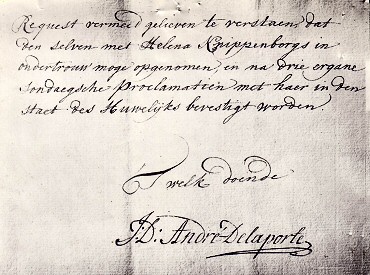 Request vermeld gelieven te verstaen, dat
den selven met Helena Knippenborgs in
ondertrouw moge opgenomen, en na drie ergane
sondaegsche Proclamatiën met haer in den
staet des Huwelijks bevestigt worden
T welk doende
J:D: André Delaporte